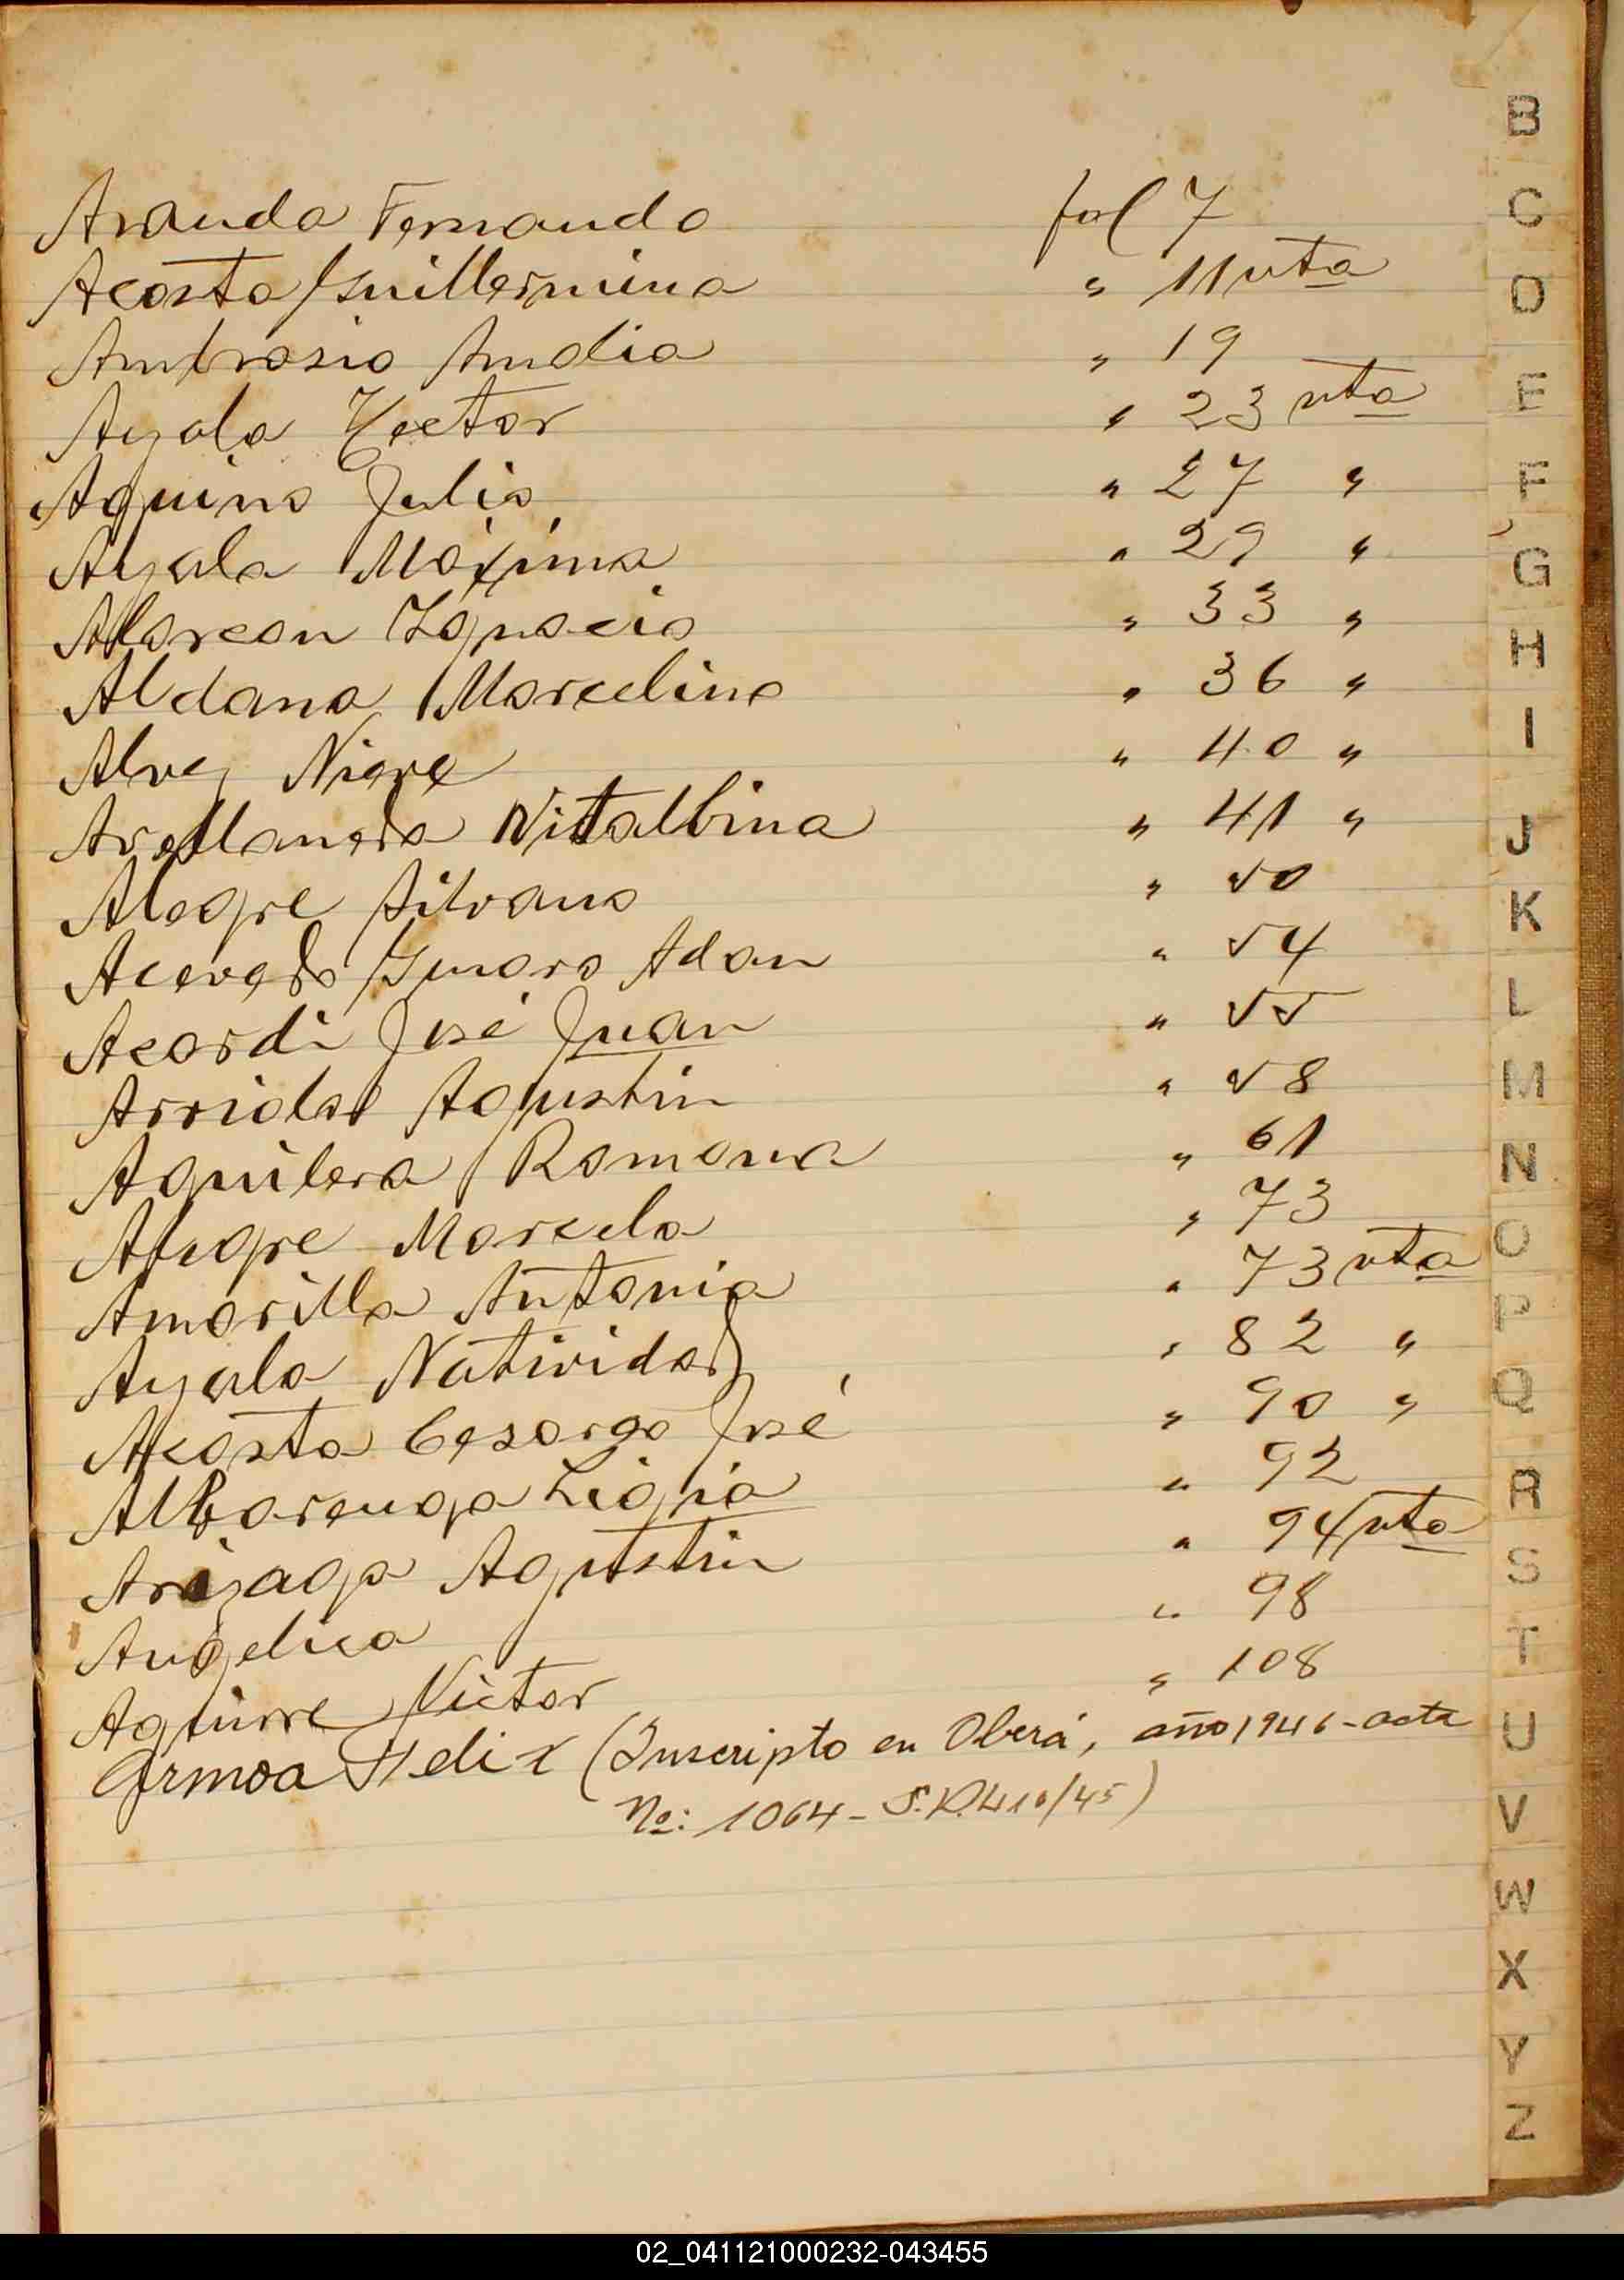 Aranda Fernando fol 7
Acosta Guillermina " 11 vta
Ambrosio Amalia " 19
Ayala Hector " 23 vta
Aquino Julio " 27 "
Ayala Máxima " 29 "
Alarcon Ignacio " 33 "
Aldana Marcelino " 36 "
Alvez Nieve " 40 "
Avellaneda Vitalbina " 41 "
Alegre Silvano " 50
Acevedo Genaro Adan " 54
Acordi José Juan " 55
Arriola Agustin " 58
Aguilera Ramona " 61
Alegre Marcela " 73
Amarilla Antonia " 73 vta
Ayala Natividad " 82 "
Acosta Cesareo José " 90 "
Albarenga Ligia " 92
Arizaga Agustin " 94 vta
Angelica " 98
Aguirre Victor " 108
Armoa Felix (Inscripto en Oberá, año 1946 - acta
No: 1064 - S.R. 410/45)
B
C
D
E
F
G
H
I
J
K
L
M
N
O
P
Q
R
S
T
U
V
W
X
Y
Z
02_041121000232-043455